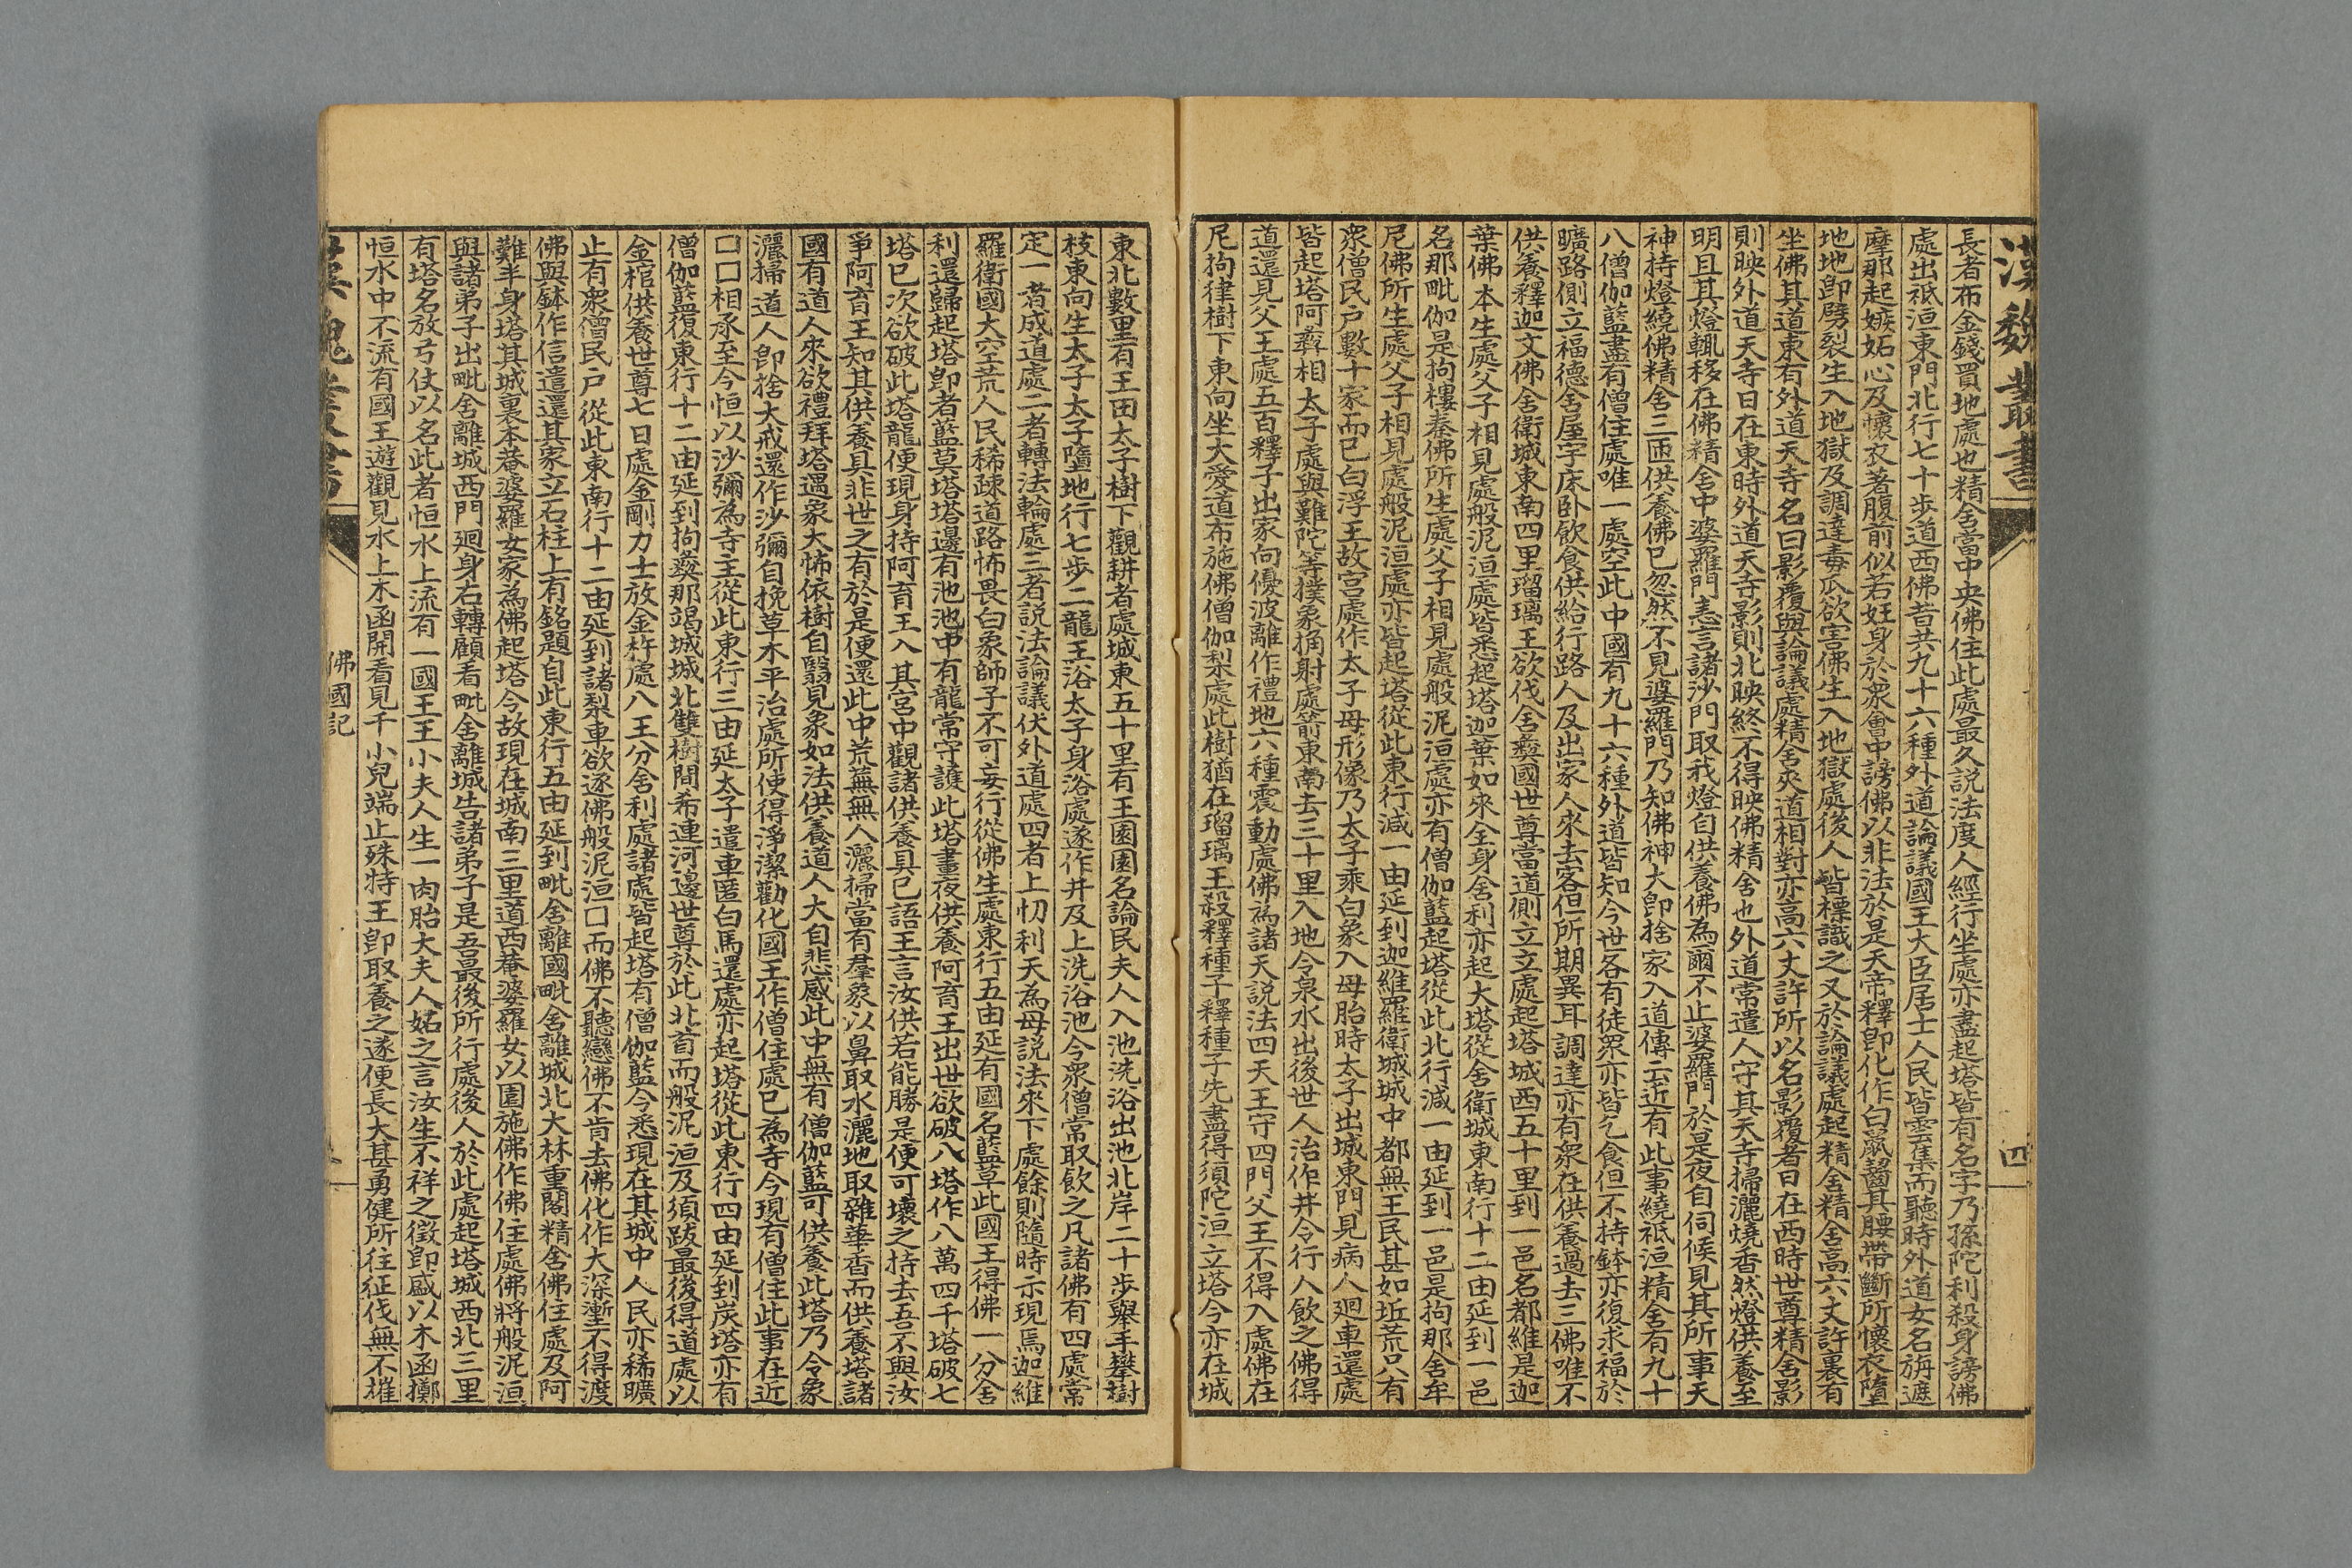 漢魏叢書
四
長者布金錢買地處也精舍當中央佛住此處最久説法度人經行坐處亦盡起塔皆有名字乃孫陀利殺身謗佛
處出祗洹東門北行七十步道西佛昔共九十六種外道論議國王大臣居士人民皆雲集而聽時外道女名旃遮
摩那起嫉妬心及懷衣著腹前似若妊身於衆會中謗佛以非法於是天帝釋即化作白鼠齧其腰帶斷所懷衣墮
地地即劈裂生入地獄及調達毒爪欲害佛生入地獄處後人皆標識之又於論議處起精舍精舍高六丈許裏有
坐佛其道東有外道天寺名曰影覆與論議處精舍夾道相對亦高六丈許所以名影覆者日在西時世尊精舍影
則映外道天寺日在東時外道天寺影則北映終不得映佛精舍也外道常遣人守其天寺掃灑燒香然燈供養至
明旦其燈輒移在佛精舍中婆羅門恚言諸沙門取我燈自供養佛為爾不止婆羅門於是夜自伺候見其所事天
神持燈繞佛精舍三匝供養佛已忽然不見婆羅門乃知佛神大即捨家入道傳云近有此事繞祗洹精舍有九十
八僧伽藍盡有僧住處唯一處空此中國有九十六種外道皆知今世各有徒眾亦皆乞食但不持鉢亦復求福於
曠路側立福德舍屋宇床卧飲食供給行路人及出家人來去客但所期異耳調達亦有衆在供養過去三佛唯不
供養釋迦文佛舍衛城東南四里瑠璃王欲伐舍夷國世尊當道側立立處起塔城西五十里到一邑名都維是迦
葉佛本生處父子相見處般泥洹處皆悉起塔迦葉如來全身舍利亦起大塔從舍衛城東南行十二由延到一邑
名那毗伽是拘樓秦佛所生處父子相見處般泥洹處亦有僧伽藍起塔從此北行減一由延到一邑是拘那舍牟
尼佛所生處父子相見處般泥洹處亦皆起塔從此東行減一由延到迦維羅衛城城中都無王民甚如坵荒只有
衆僧民戸數十家而已白浮王故宮處作太子母形像乃太子乘白象入母胎時太子出城東門見病人廻車還處
皆起塔阿彝相太子處與難陀等撲象捔射處箭東南去三十里入地令泉水出後世人治作井令行人飲之佛得
道還見父王處五百釋子出家向優波離作禮地六種震動處佛為諸天説法四天王守四門父王不得入處佛在
尼拘律樹下東向坐大愛道布施佛僧伽梨處此樹猶在瑠璃王殺釋種子釋種子先盡得須陀洹立塔今亦在城
東北數里有王田太子樹下觀耕者處城東五十里有王園園名論民夫人入池洗浴出池北岸二十步舉手攀樹
枝東向生太子太子墮地行七步二龍王浴太子身浴處遂作井及上洗浴池今衆僧常取飲之凡諸佛有四處常
定一者成道處二者轉法輪處三者説法論議伏外道處四者上忉利天為母説法來下處餘則隨時示現焉迦維
羅衛國大空荒人民稀疎道路怖畏白象師子不可妄行從佛生處東行五由延有國名藍莫此國王得佛一分舍
利還歸起塔即者藍莫塔塔邊有池池中有龍常守護此塔晝夜供養阿育王出世欲破八塔作八萬四千塔破七
塔已次欲破此塔龍便現身持阿育王入其宮中觀諸供養具已語王言汝供若能勝是便可壞之持去吾不與汝
爭阿育王知其供養具非世之有於是便還此中荒蕪無人灑掃當有羣象以鼻取水灑地取雜華香而供養塔諸
國有道人來欲禮拜塔遇象大怖依樹自翳見象如法供養道人大自悲感此中無有僧伽藍可供養此塔乃令象
灑掃道人即捨大戒還作沙彌自挽草木平治處所使得淨潔勸化國王作僧住處已為寺今現有僧住此事在近
口口相承至今恒以沙彌為寺主從此東行三由延太子遣車匿白馬還處亦起塔從此東行四由延到炭塔亦有
僧伽藍復東行十二由延到拘夷那竭城城北雙樹間希連河邊世尊於此北首而般泥洹及須跋最後得道處以
金棺供養世尊七日處金剛力士放金杵處八王分舍利處諸處皆起塔有僧伽藍今悉現在其城中人民亦稀曠
止有衆僧民戸從此東南行十二由延到諸梨車欲逐佛般泥洹口而佛不聽戀佛不肯去佛化作大深塹不得渡
佛與鉢作信遣還其家立石柱上有銘題自此東行五由延到毗舍離國毗舍離城北大林重閣精舍佛住處及阿
難半身塔其城裏本菴婆羅女家為佛起塔今故現在城南三里道西菴婆羅女以園施佛作佛住處佛將般泥洹
與諸弟子出毗舍離城西門廻身右轉顧看毗舍離城告諸弟子是吾最後所行處後人於此處起塔城西北三里
有塔名放弓仗以名此者恒水上流有一國王王小夫人生一肉胎大夫人妬之言汝生不祥之徵即盛以木函擲
恒水中下流有國王遊觀見水上木函開看見千小兒端正殊特王即取養之遂便長大甚勇健所往征伐無不摧
佛國記
漢魏叢書